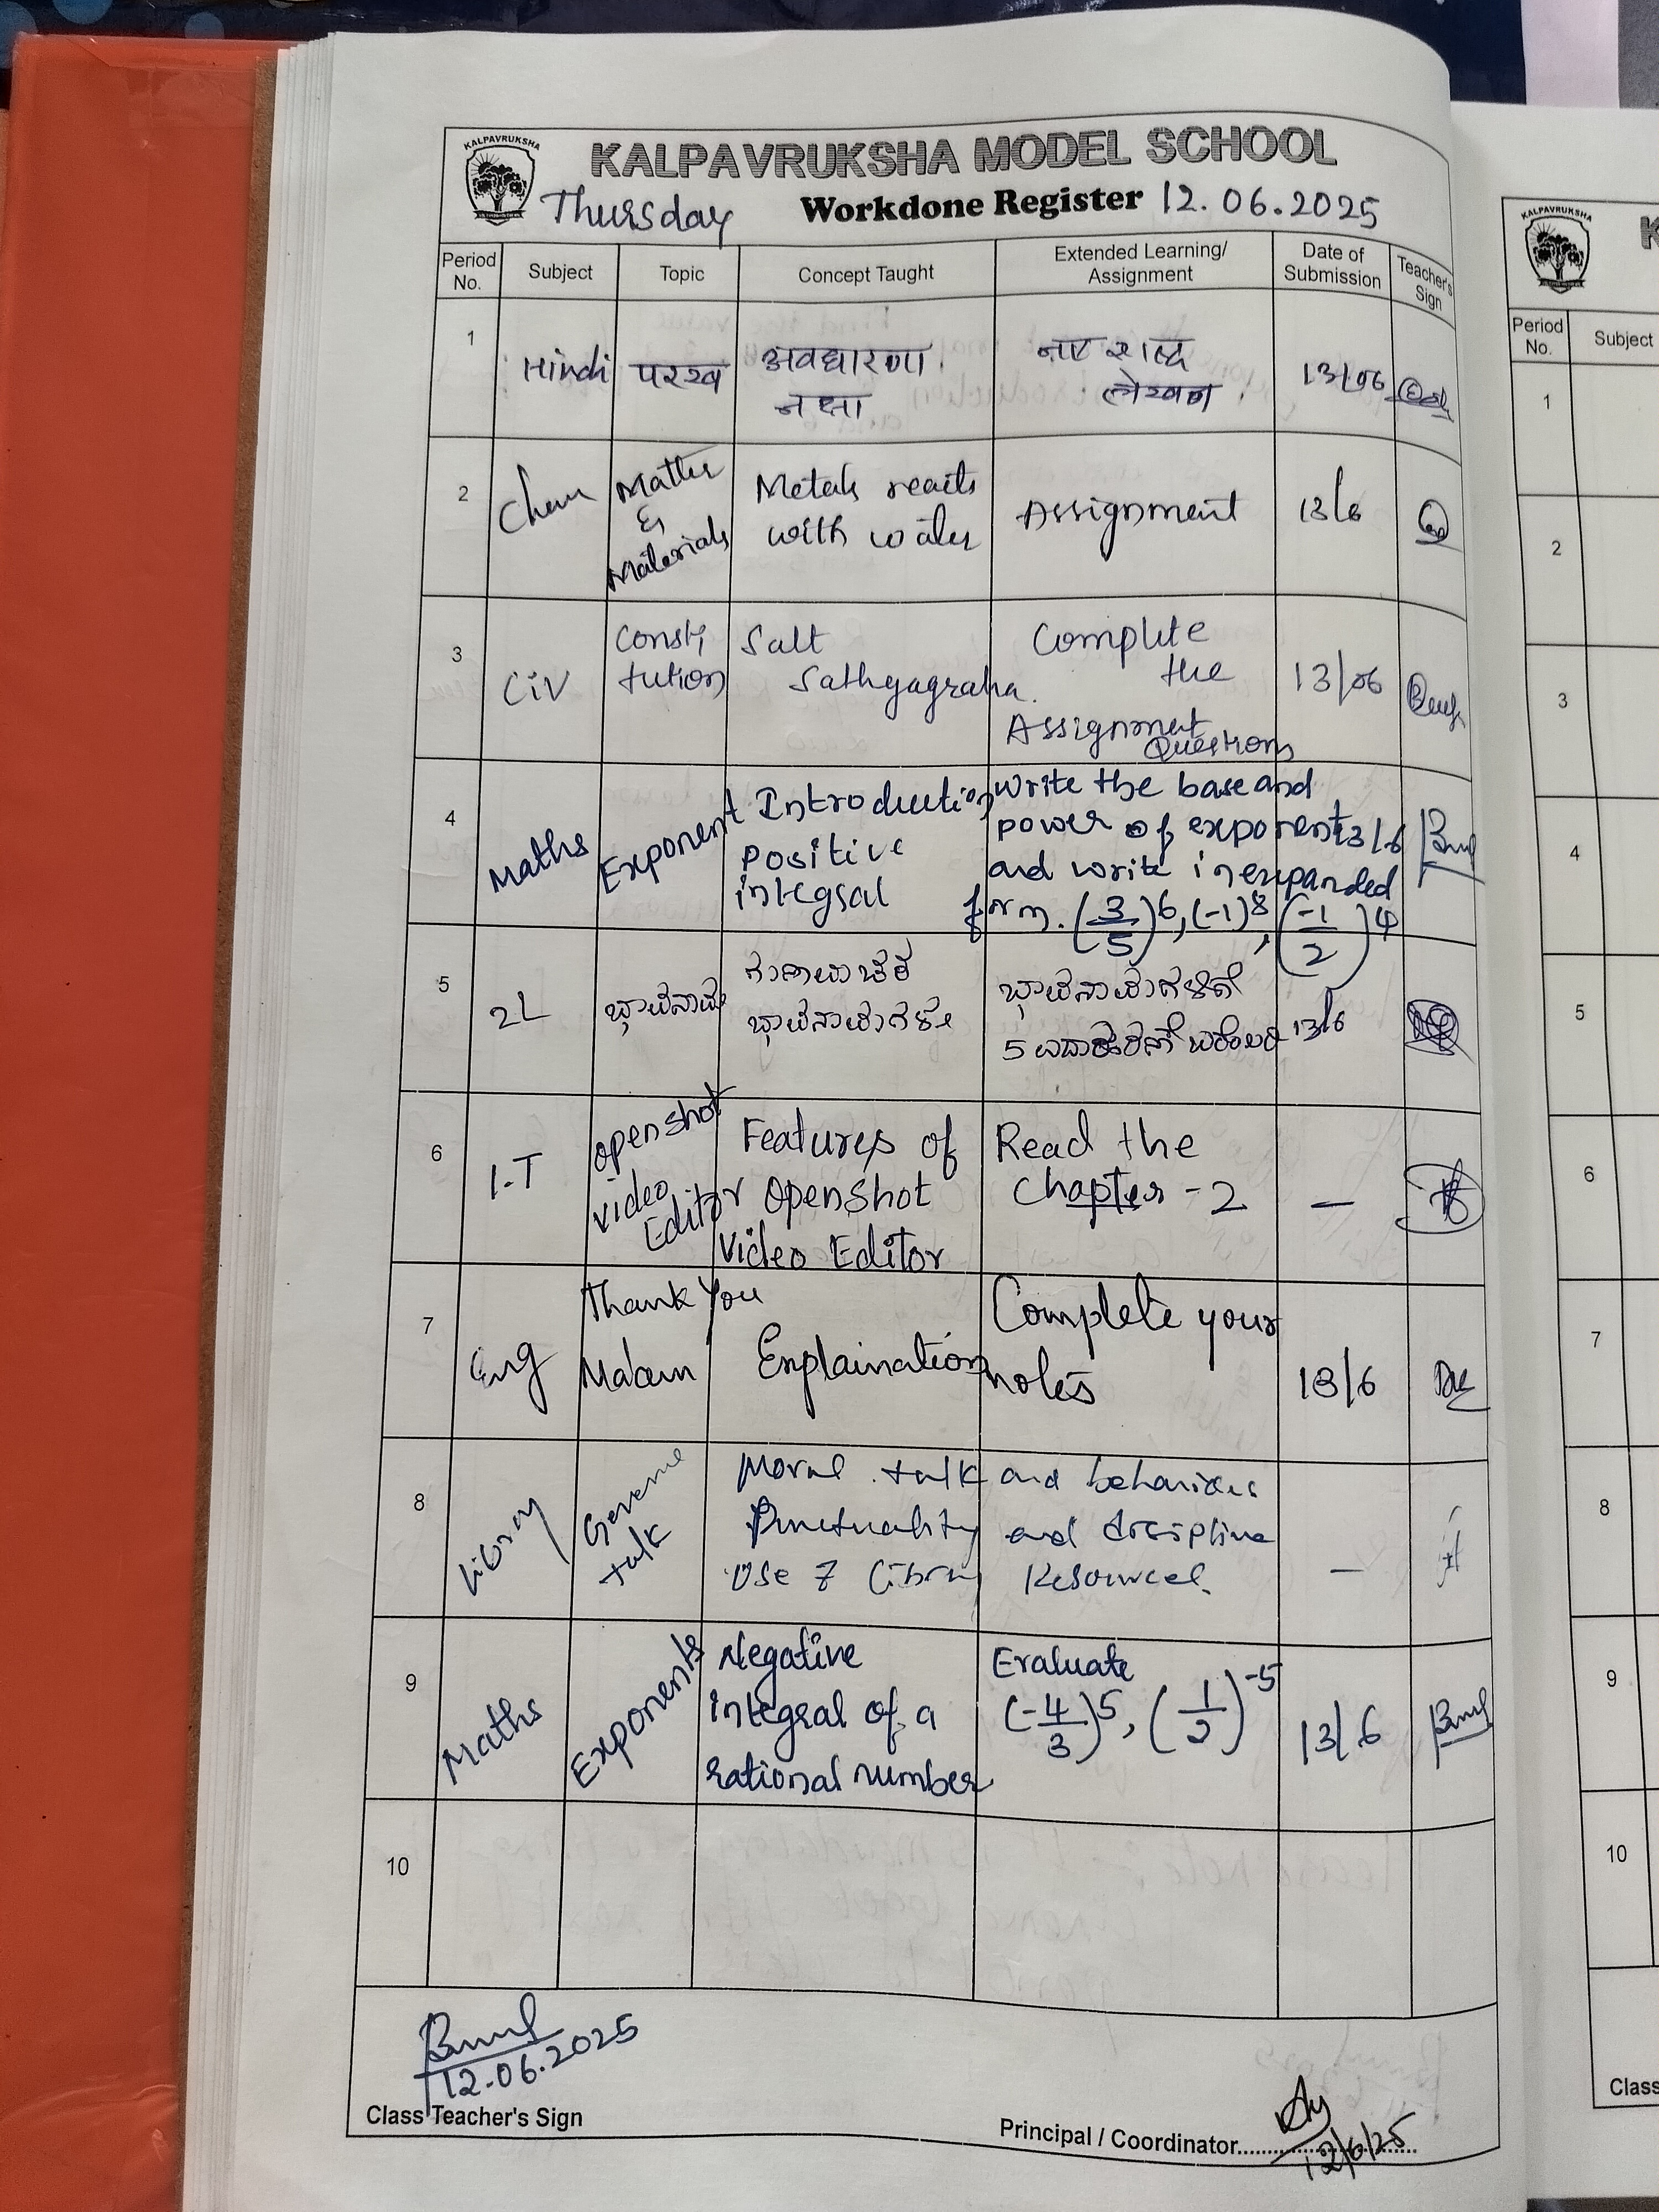 KALPAVRUKSHA
KALPAVRUKSHA MODEL SCHOOL
Thursday Workdone Register 12.06.2025
Period No. Subject Topic Concept Taught Extended Learning/ Assignment Date of Submission Teacher's Sign
1 Hindi परख अवधारणा नक्षा नए शब्द लेखन 13/06
2 Chem Matter & Materials Metals reacts with water Assignment 13/6
3 CiV Consti tution Salt Sathyagraha. Complete the Assignment Questions 13/06
4 Maths Exponent Introduction Positive integral Write the base and power of exponent and write in expanded form. (3/5)6, (-1)8, (-1/2)4 13/6
5 2L ಭಾವನಾಮ ಗುಣವಾಚಕ ಭಾವನಾಮಗಳು ಭಾವನಾಮಗಳಿಗೆ 5 ಉದಾಹರಣೆ ಬರೆಯಿರಿ 13/6
6 I.T openshot video Editor Features of OpenShot Video Editor Read the Chapter - 2 —
7 Eng Thank You Ma'am Explaination Complete your notes 13/6
8 Library General talk Moral talk and behaviours
Punctuality and discipline
Use of Library Resources. —
9 Maths Exponents Negative integral of a rational number Evaluate (-4/3)5, (1/2)-5 13/6
10
12.06.2025
Class Teacher's Sign
Principal / Coordinator
12/6/25
KALPAVRUKSHA
K
Period No. Subject
1
2
3
4
5
6
7
8
9
10
Class